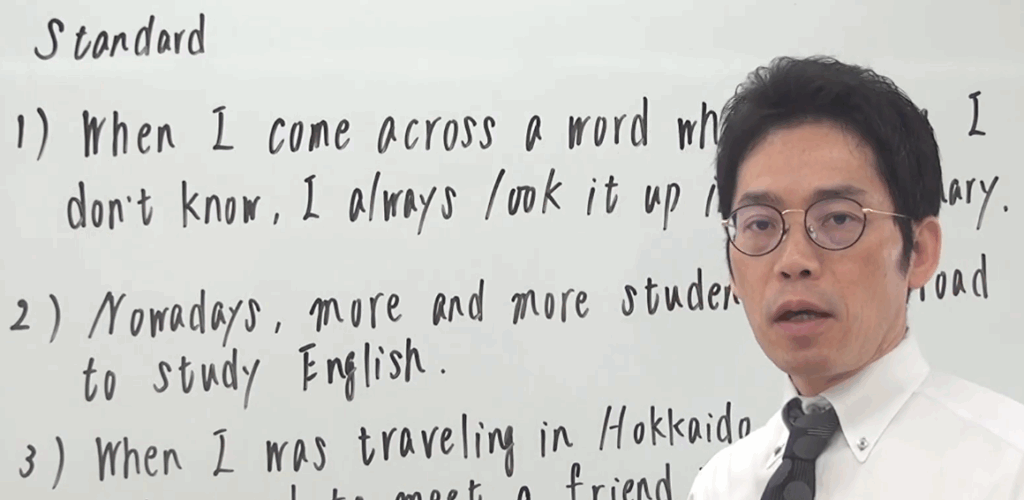 Standard
1) When I come across a word wh I
don't know, I always look it up i ary.
2) Nowadays, more and more studen oad
to study English.
3) When I was traveling in Hokkaido
to meet a friend